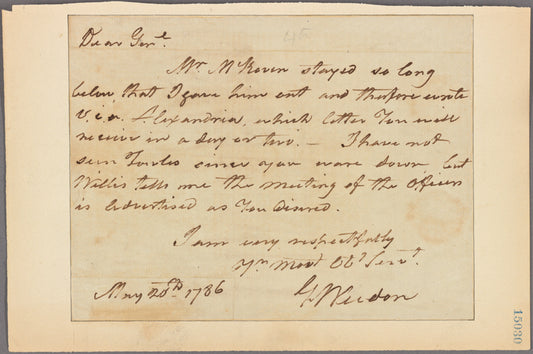 Dear Genl.
Mr. McKoven stayed so long
below that I gave him out and therefore wrote
via Alexandria, which letter You will
receive in a day or two. — I have not
seen Towles since you ware down but
Willis tells me the meeting of the Officers
is Advertised as You desired.
I am very respectfully
Yr. most Obt Servt.
May 20th 1786
G Weedon
15080